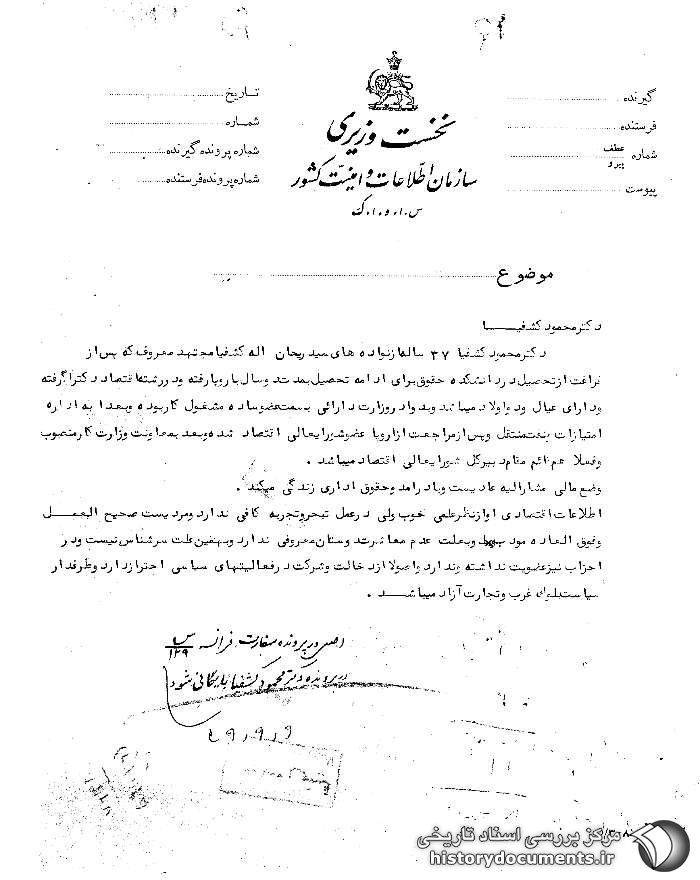 گیرنده
فرستنده
شماره عطف
پیرو
پیوست
نخست وزیری
سازمان اطلاعات و امنیت کشور
س.ا.و.ا.ک
تاریخ
شماره
شماره پرونده گیرنده
شماره پرونده فرستنده
موضوع
دکتر محمود کشفیا
دکتر محمود کشفیا ۳۷ ساله از نواده های سید ریحان اله کشفیا مجتهد معروف که پس از
فراغت از تحصیل در دانشکده حقوق برای ادامه تحصیل بمدت دو سال باروپا رفته و در رشته اقتصاد دکترا گرفته
و دارای عیال و دو اولاد میباشد و بدوا در وزارت دارائی بسمت عضو ساده مشغول کار بوده و بعدا به اداره
امتیازات نفت منتقل و پس از مراجعت از اروپا عضو شورایعالی اقتصاد شده و بعد بمعاونت وزارت کار منصوب
و فعلا هم قائم مقام دبیر کل شورایعالی اقتصاد میباشد .
وضع مالی مشارالیه عادیست و با درامد و حقوق اداری زندگی میکند .
اطلاعات اقتصادی او از نظر علمی خوب ولی در عمل تبحر و تجربه کافی ندارد و مردیست صحیح العمل
و فوق العاده مودب و بعلت عدم معاشرت دوستان معروفی ندارد و بهمین علت سرشناس نیست و در
احزاب نیز عضویت نداشته و ندارد و اصولا از دخالت و شرکت در فعالیتهای سیاسی احتراز دارد و طرفدار
سیاست غرب و تجارت آزاد میباشد .
اصل در پرونده سفارت فرانسه س ۱۲۹
در پرونده دکتر محمود کشفیا بایگانی شود
۴۹/۹/۹
مرکز بررسی اسناد تاریخی
historydocuments.ir